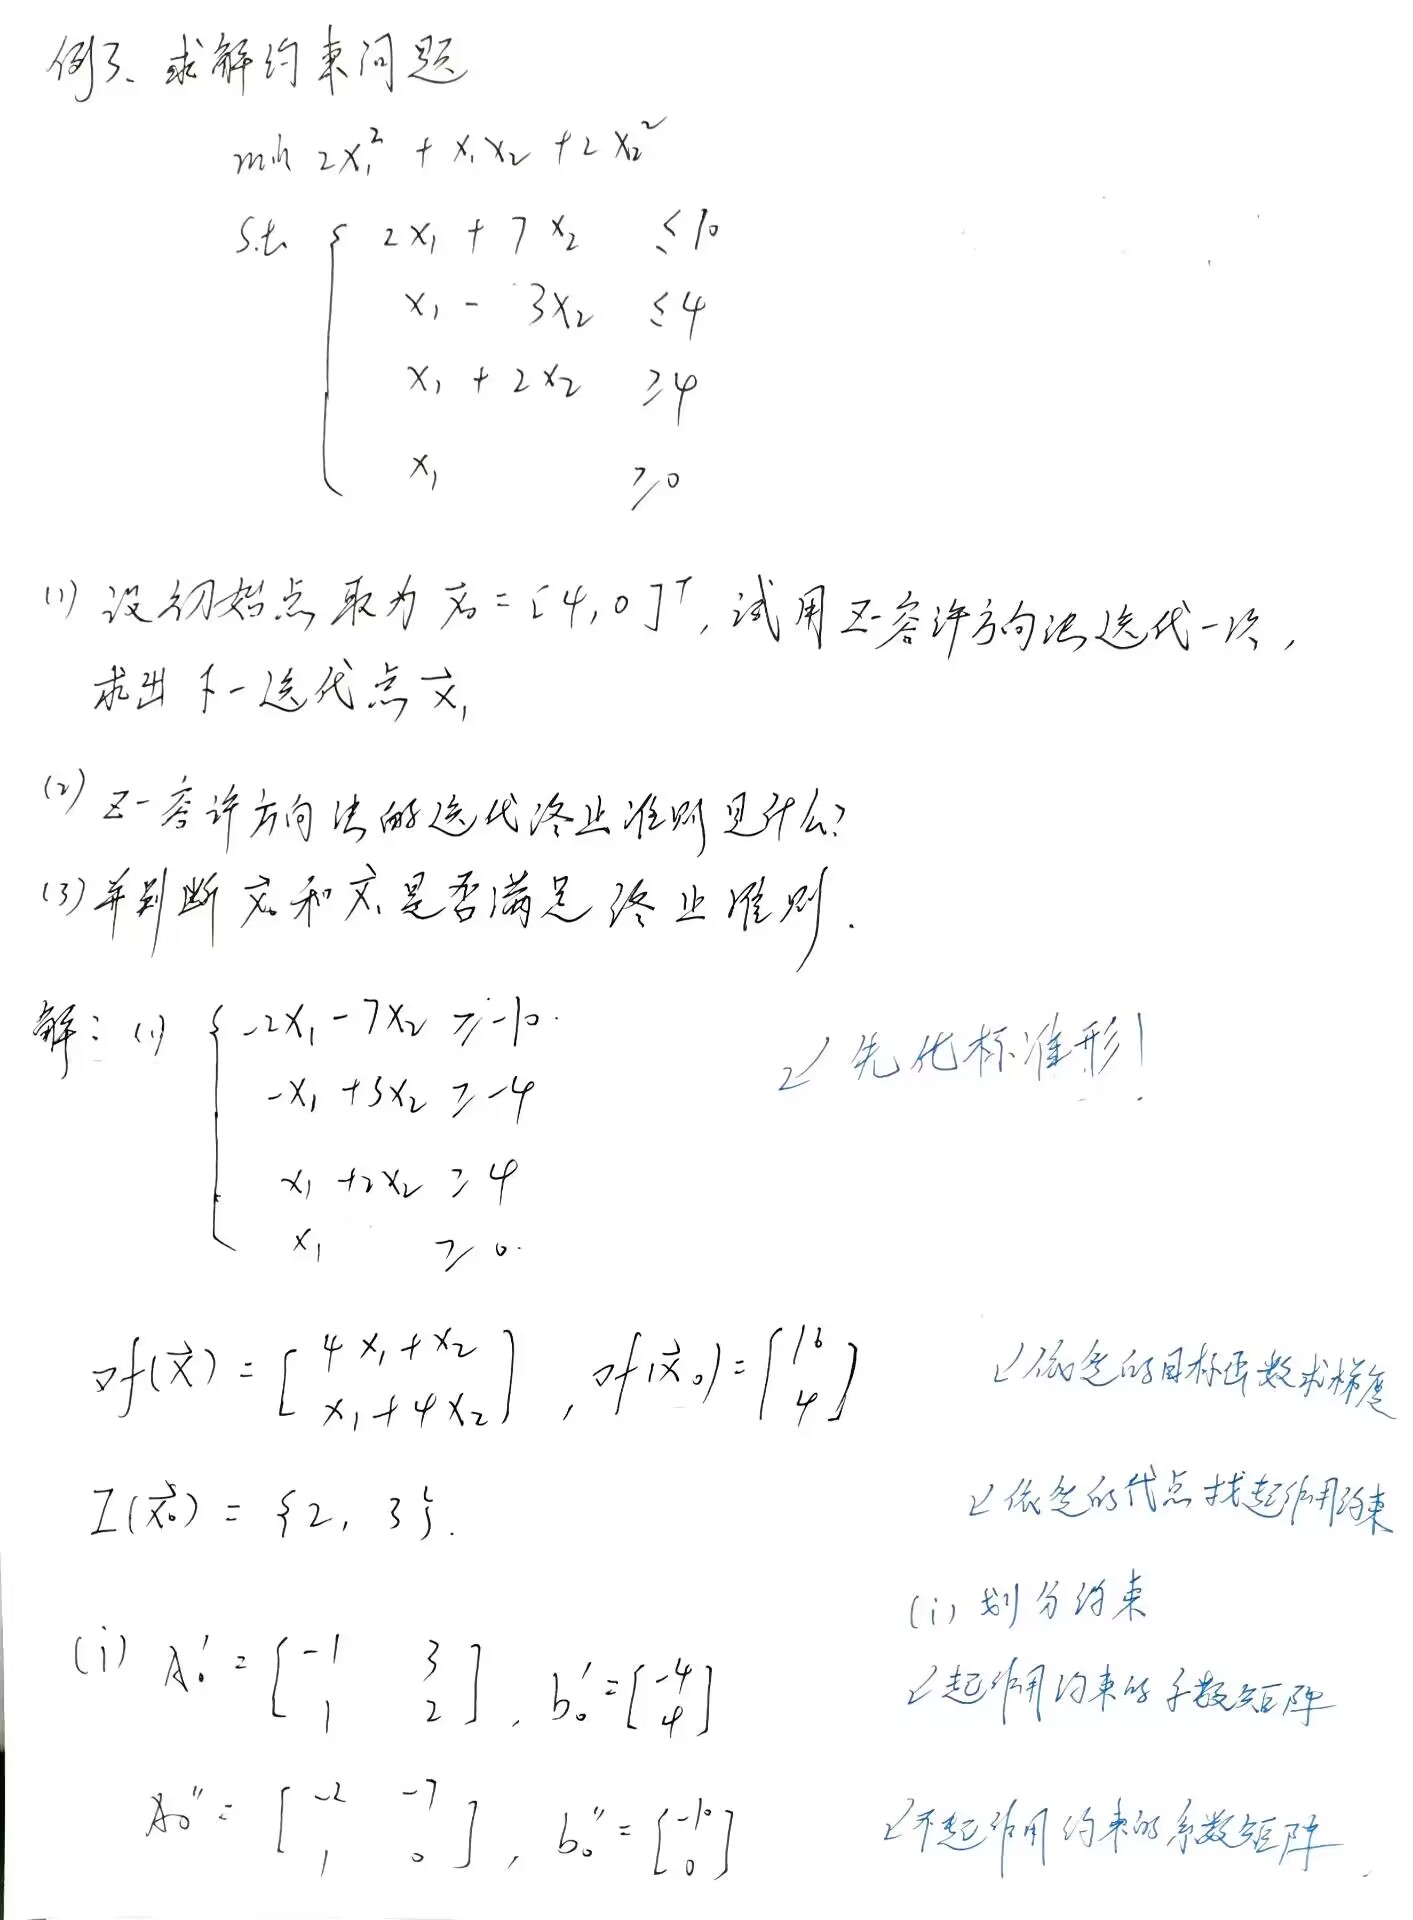 例3、求解约束问题
min 2x₁² + x₁x₂ + 2x₂²
s.t. { 2x₁ + 7x₂ ≤ 10
x₁ - 3x₂ ≤ 4
x₁ + 2x₂ ≥ 4
x₁ ≥ 0
(1) 设初始点取为 x⃗₀ = [4, 0]ᵀ, 试用Z-容许方向法迭代一次,
求出下一迭代点 x⃗₁
(2) Z-容许方向法的迭代终止准则是什么?
(3) 并判断 x⃗₀ 和 x⃗₁ 是否满足终止准则.
解: (1) { -2x₁ - 7x₂ ≥ -10.
✓ 先化标准形!
-x₁ + 3x₂ ≥ -4
x₁ + 2x₂ ≥ 4
x₁ ≥ 0.
∇f(x⃗) = [ 4x₁ + x₂ ; x₁ + 4x₂ ], ∇f(x⃗₀) = [ 16 ; 4 ]
✓ 依定的目标函数求梯度
I(x⃗₀) = {2, 3}.
✓ 依定的代点找起作用约束
(i) 划分约束
(i) A₀' = [ -1 3 ; 1 2 ], b₀' = [ -4 ; 4 ]
✓ 起作用约束的系数矩阵
A₀'' = [ -2 -7 ; 1 0 ], b₀'' = [ -10 ; 0 ]
✓ 不起作用约束的系数矩阵